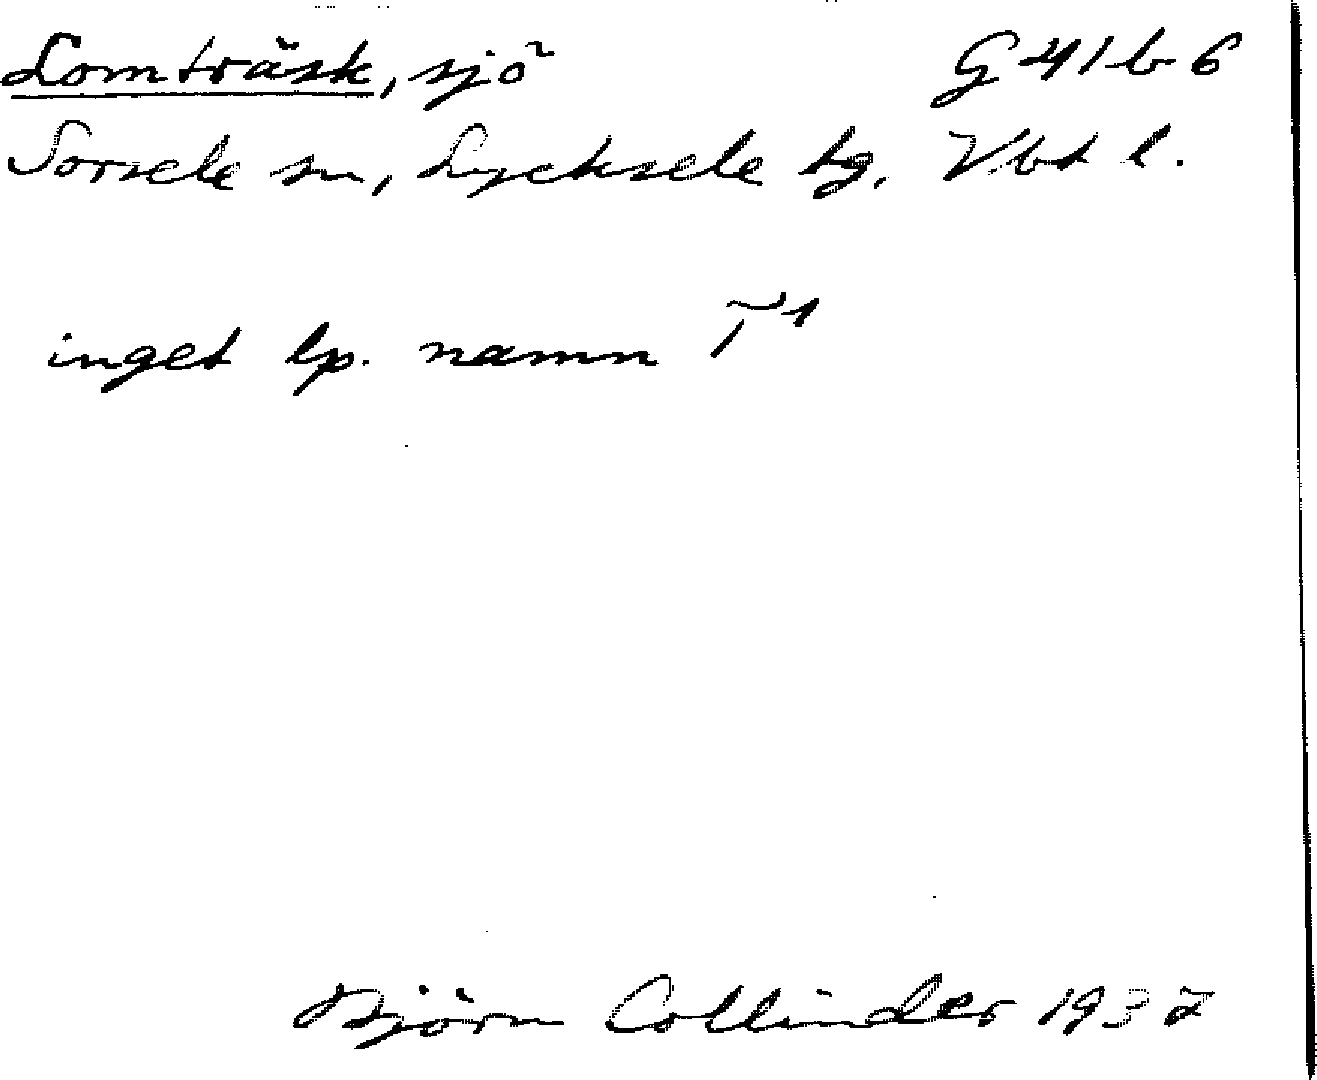 Lomträsk, sjö G 41 b 6
Sorsele sn, Lycksele tg. Vbt l.
inget lp. namn T¹
Björn Collinder 193